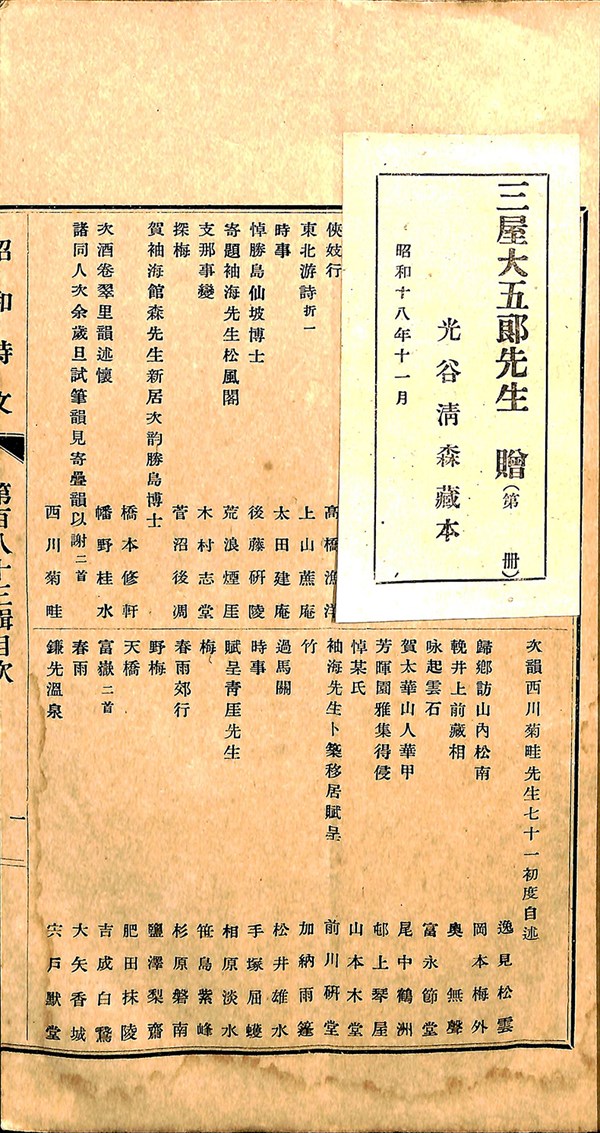 三屋大五郎先生 贈(第 冊)
光谷清森藏本
昭和十八年十一月
俠妓行 高橋
東北游詩折一 上山蔗庵
時事 太田建庵
悼勝島仙坡博士 後藤硏陵
寄題袖海先生松風閣 荒浪煙厓
支那事變 木村志堂
探梅 菅沼後凋
賀袖海館森先生新居次韵勝島博士
橋本修軒
次酒卷翠里韻述懷 幡野桂水
諸同人次余歲旦試筆韻見寄疊韻以謝二首
西川菊畦
次韻西川菊畦先生七十一初度自述
逸見松雲
歸鄉訪山內松南 岡本梅外
輓井上前藏相 奧無聲
咏起雲石 富永節堂
賀太華山人華甲 尾中鶴洲
芳暉園雅集得侵 邨上琴屋
悼某氏 山本木堂
袖海先生卜築移居賦呈 前川硏堂
竹 加納雨篷
過馬關 松井雄水
時事 手塚屈蠖
賦呈靑厓先生 相原淡水
梅 笹島紫峰
春雨郊行 杉原磐南
野梅 鹽澤梨齋
天橋 肥田抹陵
富嶽二首 吉成白鷺
春雨 大矢香城
鎌先溫泉 宍戶默堂
昭和詩文 第百八十三輯目次 一